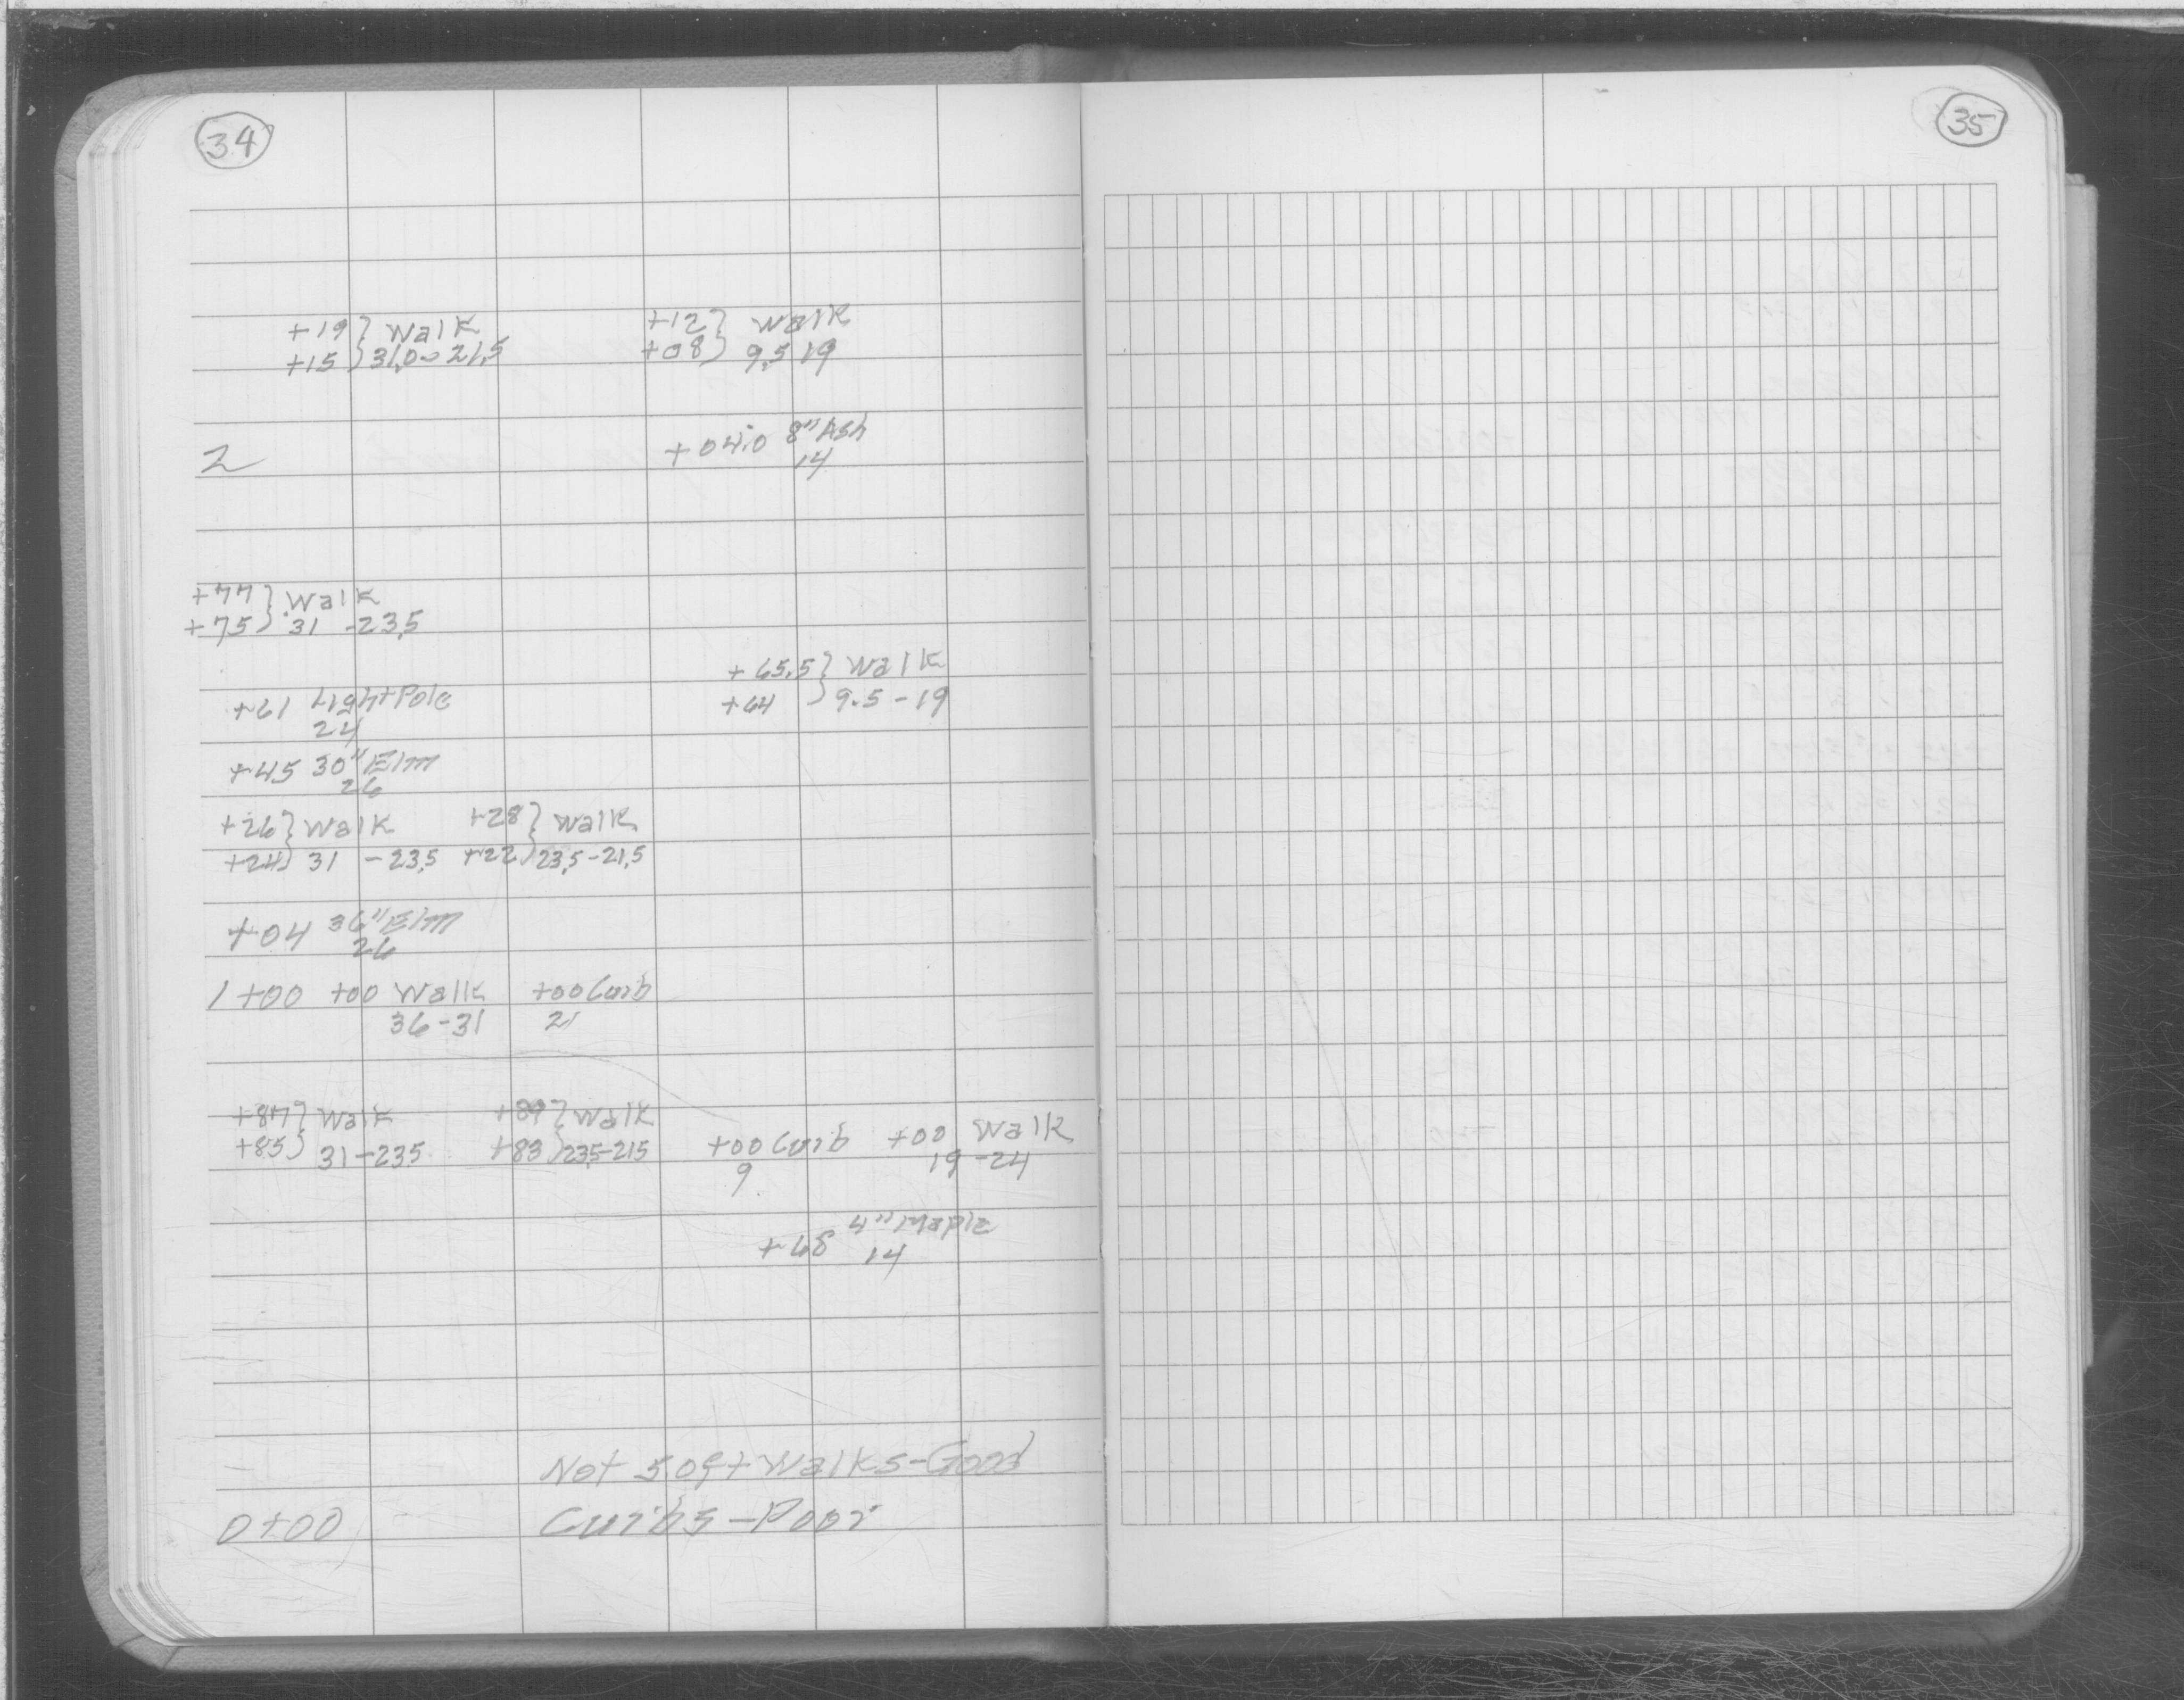 34
35
+19 } Walk
+15 } 31.0 - 21.5
+12 } Walk
+08 } 9.5 19
2
+04.0 8" Ash
14
+77 } Walk
+75 } 31 - 23.5
+65.5 } Walk
+64 } 9.5 - 19
+61 Light Pole
24
+45 30" Elm
26
+26 } Walk +28 } Walk
+24 } 31 - 23.5 +22 } 23.5 - 21.5
+04 36" Elm
26
1+00 +00 Walk +00 Curb
36 - 31 21
+87 } Walk +89 } Walk
+85 } 31 - 235 +83 } 23.5 - 215
+00 Curb +00 Walk
9 19 - 24
+68 4" Maple
14
Not 50ft Walks - Good
0+00 Curbs - Poor